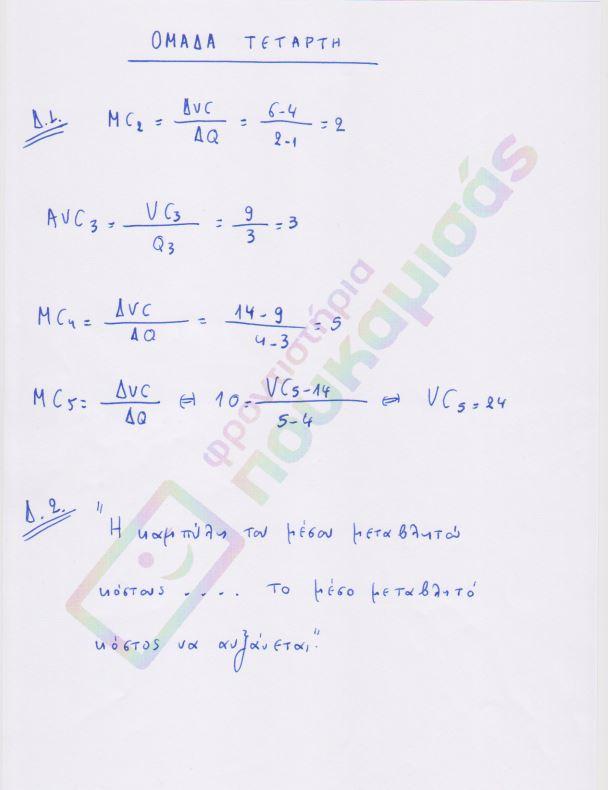 ΟΜΑΔΑ ΤΕΤΑΡΤΗ
Δ.1. MC₂ = ΔVC / ΔQ = 6-4 / 2-1 = 2
AVC₃ = VC₃ / Q₃ = 9 / 3 = 3
MC₄ = ΔVC / ΔQ = 14-9 / 4-3 = 5
MC₅ = ΔVC / ΔQ ⇔ 10 = VC₅-14 / 5-4 ⇔ VC₅ = 24
Δ.2. "Η καμπύλη του μέσου μεταβλητού
κόστους .... το μέσο μεταβλητό
κόστος να αυξάνεται."
φροντιστήρια
πουκαμισάς